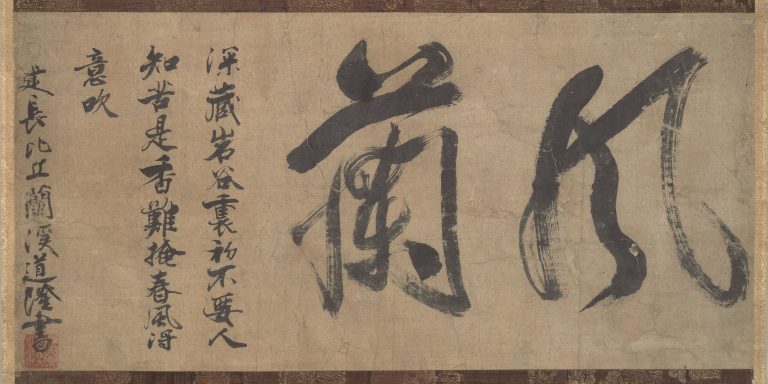 風蘭
深蔵岩谷裏初不要人
知苦是香難掩春風得
意吹
建長比丘蘭溪道隆書